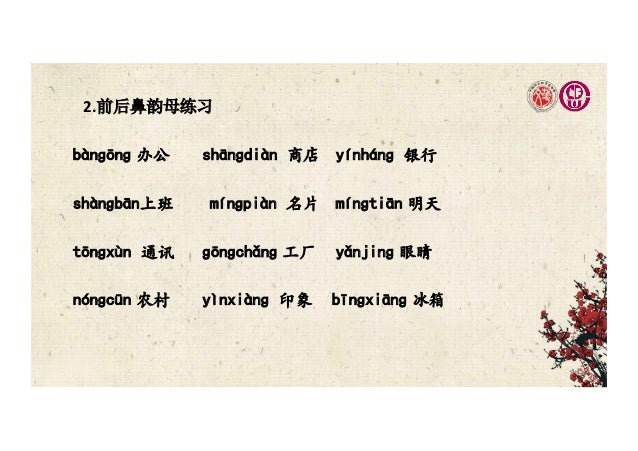 2.前后鼻韵母练习
bàngōng 办公 shāngdiàn 商店 yínháng 银行
shàngbān上班 míngpiàn 名片 míngtiān 明天
tōngxùn 通讯 gōngchǎng 工厂 yǎnjing 眼睛
nóngcūn 农村 yìnxiàng 印象 bīngxiāng 冰箱